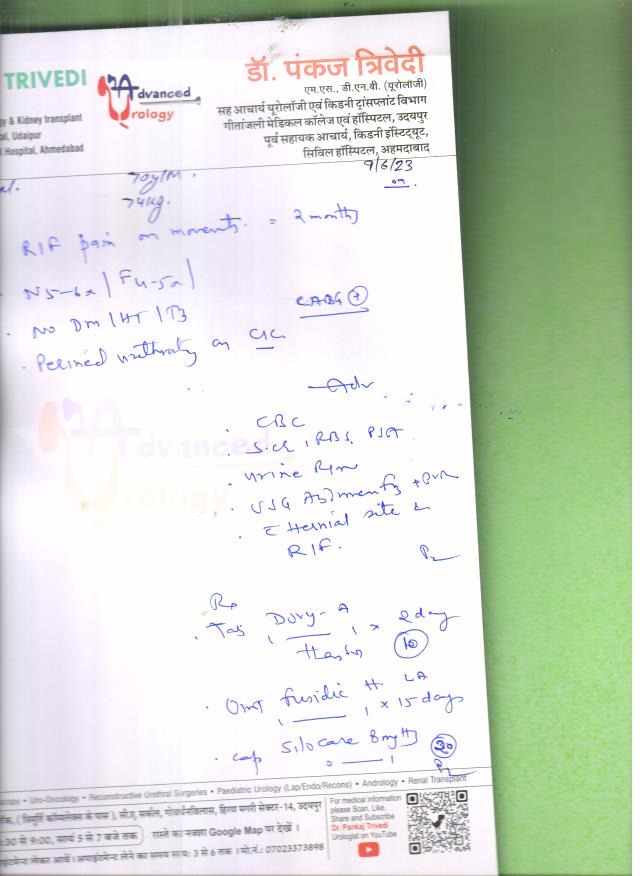 TRIVEDI
y & Kidney transplant
al, Udaipur
l Hospital, Ahmedabad
Advanced
Urology
डॉ. पंकज त्रिवेदी
एम.एस., डी.एन.बी. (यूरोलॉजी)
सह आचार्य यूरोलॉजी एवं किडनी ट्रांसप्लांट विभाग
गीतांजली मेडिकल कॉलेज एवं हॉस्पिटल, उदयपुर
पूर्व सहायक आचार्य, किडनी इंस्टिट्यूट,
सिविल हॉस्पिटल, अहमदाबाद
9/6/23
70y/M.
74kg.
RIF pain on movements. = 2 months
N5-6x | Fu-5x |
CABG +
No DM / HT / TB
Perineal urethrostomy on CIC.
Adv
CBC
S.cr, RBS, PSA
Urine R/m
USG Abdomen + PVR
Hernial site &
RIF.
Advanced
Urology
Rx
Tab Doxy-A
1 ——— 1 x 2 day
10
Oint Fusidic H. LA
1 ——— 1 x 15 days
cap Silocare 8mg
0 ——— 1
30
scopy • Uro-Oncology • Reconstructive Urethral Surgeries • Paediatric Urology (Lap/Endo/Recons) • Andrology • Renal Transplant
क. ( त्रिमूर्ति कॉम्प्लेक्स के पास ) सी.ए. सर्कल, गोवर्धनविलास, हिरण मगरी सेक्टर-14, उदयपुर
:30 से 9:00, सायं 5 से 7 बजे तक रास्ते का नक्शा Google Map पर देखें ।
ाइंटमेन्ट लेकर आवें । अपाइंटमेन्ट लेने का समय सायः 3 से 6 तक । मो.नं.: 07023373898
For medical information
please Scan, Like,
Share and Subscribe
Dr. Pankaj Trivedi
Urologist on YouTube